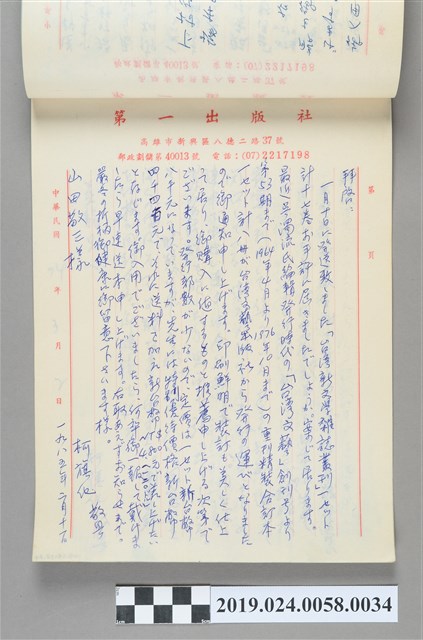 第一出版社
高雄市新興區八德二路37號
郵政劃儲第40013號 電話：(07)2217198
第 頁
拝啓、
一月十日に発送致しました「台湾新文学雑誌叢刊」一セット
計十七巻お手許に届きましたでしょうか。案じて居ります。
最近、呉濁流氏編輯発行時代の「台湾文藝」創刊号より
第53期まで（1964年4月より1976年10月まで）の重刊精装合訂本
一セット計八冊が台湾文藝出版社から発行の運びになりました
ので御通知申し上げます。印刷鮮明で装訂も美しく仕上
って居り、御購入に値するものと推薦申し上げる次第で
ございます。発行部数が少ないので、定価は一セット新台幣
八千元になってますが、先生には特別優待価格新台幣
四千四百元で、それに送料を加え新台幣
となります。御入用でございましたら何卒御一報して戴きま
したら早速送本申し上げます。右取あえずお知らせまで。
厳冬の折柄御健康に御留意下さいます様。
柯旗化 敬具
一九八五年二月十一日
山田敬三様
中華民國 年 月 日
2019.024.0058.0034